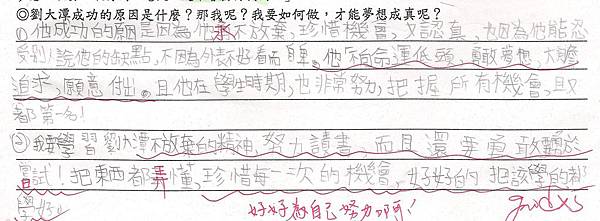 ◎劉大潭成功的原因是什麼？那我呢？我要如何做，才能夢想成真呢？
①他成功的原因是因為他永不放棄，珍惜機會，又認真，也因為他能忍
受別人說他的缺點，不因為外表不好看而自卑。他不向命運低頭，勇敢夢想，大膽
追求，願意付出。且他在學生時期，也非常努力，把握所有機會，且取
都第一名！
②我要學習劉大潭不放棄的精神，努力讀書，而且還要勇敢願於
嘗試！把東西都弄懂，珍惜每一次的機會，好好的把該學的都
學好。
好好為自己努力呵！
good x5